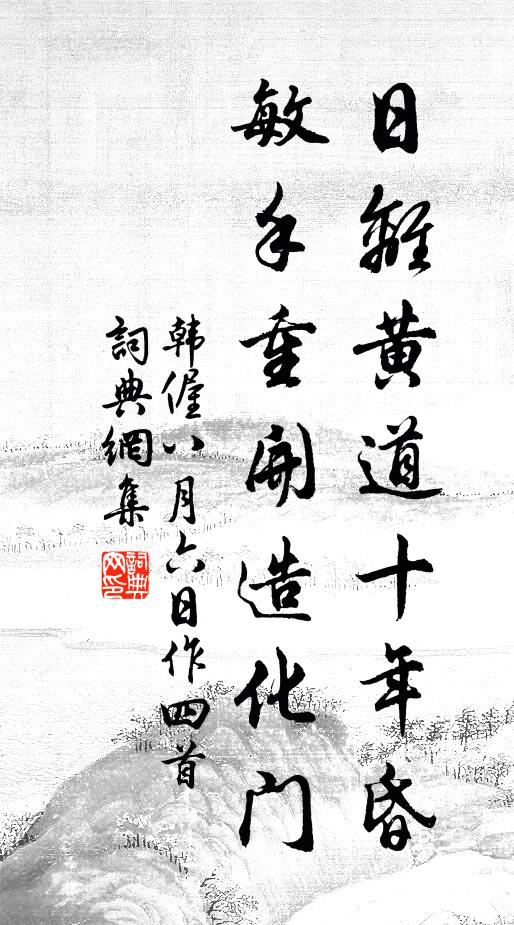 日離黃道十年昏
敏手重開造化門
韩偓八月六日作四首
詞典網集
詞典網印